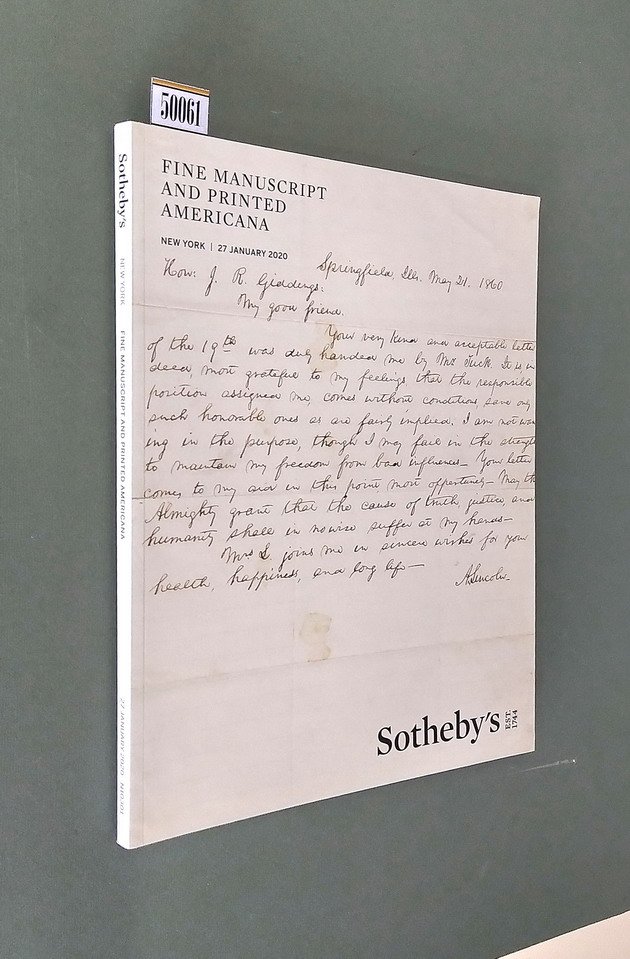 50061
Sotheby's
NEW YORK
FINE MANUSCRIPT AND PRINTED AMERICANA
27 JANUARY 2020
FINE MANUSCRIPT
AND PRINTED
AMERICANA
NEW YORK | 27 JANUARY 2020
Springfield, Ills. May 21. 1860
Hon: J. R. Giddings:
My good friend.
Your very kind and acceptable letter
of the 19th was duly handed me by Mr. Tuck. It is in
deed, most grateful to my feelings, that the responsible
position assigned me, comes without conditions, save only
such honorable ones as are fairly implied. I am not wan
ing in the purpose, though I may fail in the strength
to maintain my freedom from bad influences— Your letter
comes to my aid in this point most opportunely— May the
Almighty grant that the cause of truth, justice, and
humanity shall in no wise suffer at my hands—
Mrs L. joins me in sincere wishes for your
health, happiness, and long life—
A. Lincoln
Sotheby's EST. 1744